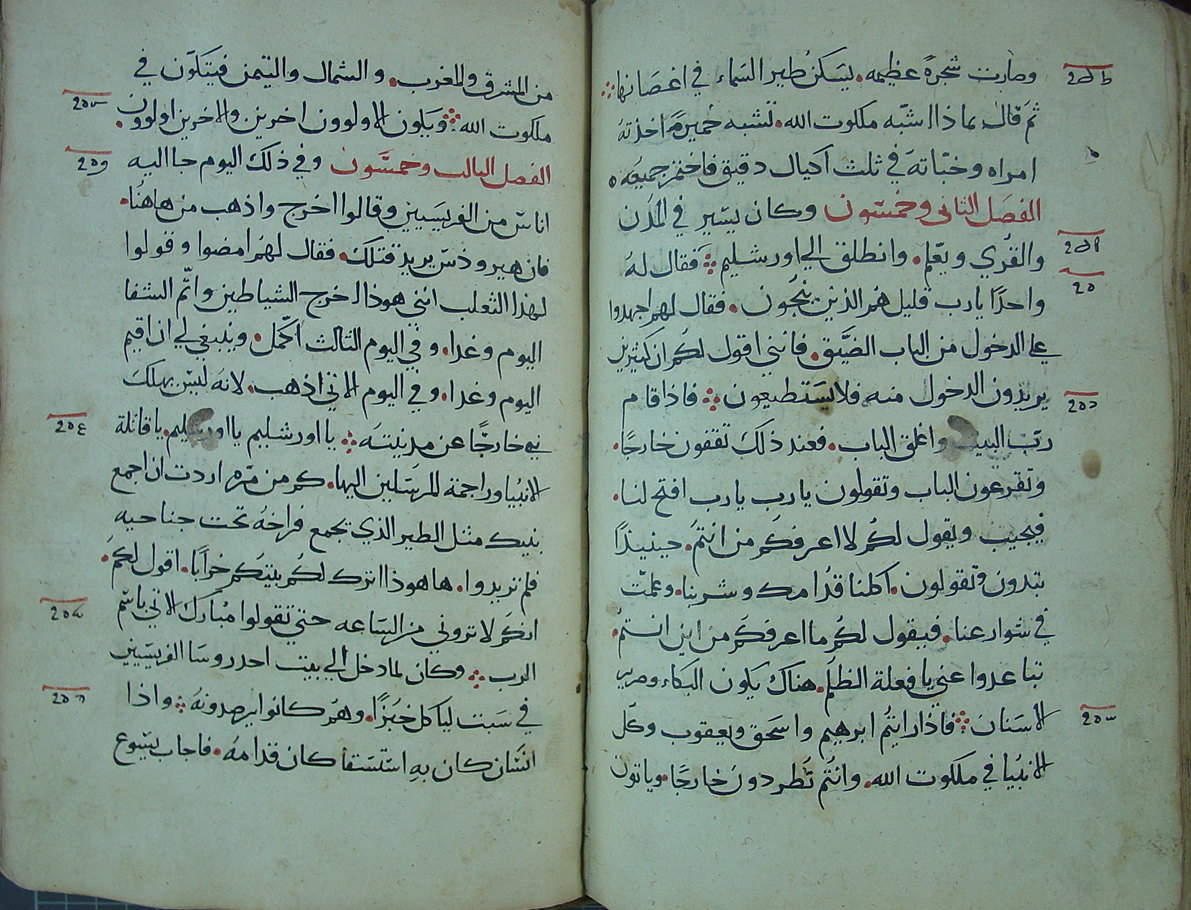 وصارت شجرةً عظيمه. يسكن طير السماء في اغصانها
ثم قال بماذا اشبّه ملكوت الله. تشبه خميرةً اخذته
امراه وخبّاته في ثلث اكيال دقيق فاختمر جميعه
الفصل الثاني وخمسون وكان يسير في المدن
والقرى ويعلم. وانطلق الى اورشليم فقال له
واحدًا يارب قليل هم الذين ينجون. فقال لهم اجهدوا
على الدخول من الباب الضيّق. فانني اقول لكم ان كثيرين
يريدون الدخول منه فلا يستطيعون فاذا قام
ربّ البيت واغلق الباب. فعند ذلك تقفون خارجًا.
وتقرعون الباب وتقولون يارب يارب افتح لنا.
فيجيب ويقول لكم لا اعرفكم من انتم. حينيذًا
تبتدون تقولون. اكلنا قدامك وشربنا. وعلمت
في شوارعنا. فيقول لكم ما اعرفكم من اين انتم.
تباعدوا عني يا فعلة الظلم. هناك يكون البكاء وصرير
الاسنان فاذا رايتم ابرهيم واسحق ويعقوب وكل
الانبيا في ملكوت الله. وانتم تطردون خارجًا. وياتون
من المشرق والمغرب. والشمال والتيمن فيتكون في
ملكوت الله ويكون الاولوون اخرين والاخرين اولوون.
الفصل الثالث وخمسون وفي ذلك اليوم جا اليه
اناسٌ من الفريسيين وقالوا اخرج واذهب من هاهنا.
فان هيرودس يريد قتلك. فقال لهم امضوا وقولوا
لهذا الثعلب انني هوذا اخرج الشياطين واتم الشفا
اليوم وغدا. وفي اليوم الثالث اكمل. وينبغي لي ان اقيم
اليوم وغدا. وفي اليوم الاتي اذهب. لانه ليس يهلك
نبي خارجًا عن مدينته يا اورشليم يا اورشليم يا قاتلة
الانبيا وراجمة المرسلين اليها. كم من مره اردت ان اجمع
بنيك مثل الطير الذي يجمع فراخه تحت جناحيه
فلم تريدوا. ها هوذا اترك لكم بيتكم خرابًا. اقول لكم.
انكم لا تروني من الساعه حتى تقولوا مبارك الاتي باسم
الرب وكان لما دخل الى بيت احد روسا الفريسيين
في سبت لياكل خبزًا. وهم كانوا يرصدونه واذا
انسان كان به استسقا كان قدامه. فاجاب يسوع